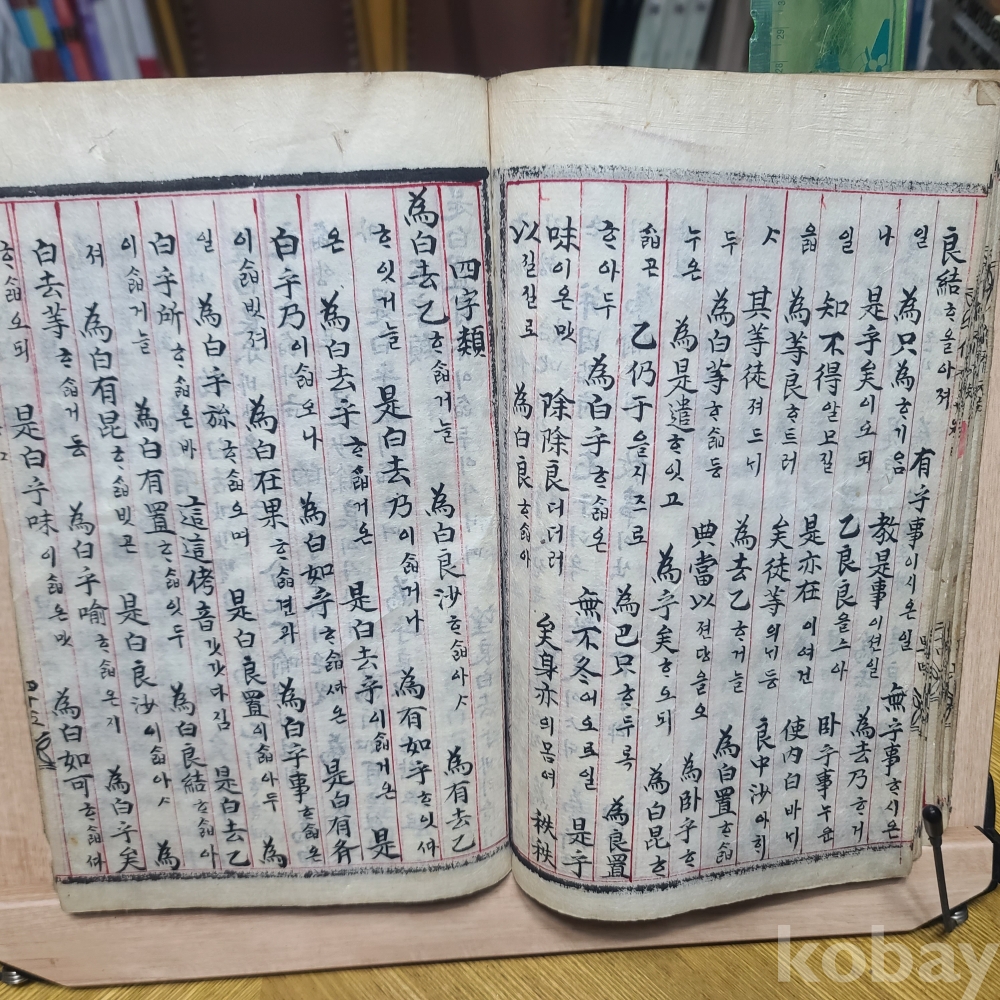 良結ᄒᆞ올아져 有乎事이시온일 無乎事ᄒᆞ시온
일 為只為ᄒᆞ기음 教是事이션일 為去乃ᄒᆞ거
나 是乎矣이오되 乙良良을스아 卧乎事누운
일 知不得알모질 是亦在이여건 使內白바ᄂᆡ
ᄉᆞᆲ 為等良ᄒᆞ트러 矣徒等의ᄂᆡ등 良中沙아ᄒᆡ
ㅅ 其等徒져드ᄂᆡ 為去乙ᄒᆞ거늘 為白置ᄒᆞᄉᆞᆲ
두 為白等ᄒᆞᄉᆞᆲ등 典當以젼당을오 為卧乎ᄒᆞ
누온 為是遣ᄒᆞ잇고 為乎矣ᄒᆞ오되 為白昆ᄒᆞ
ᄉᆞᆲ곤 乙仍于을지즈로 為巴只ᄒᆞ두록 為良置
ᄒᆞ아두 為白乎ᄒᆞᄉᆞᆲ온 無不冬어오로일 是乎
味이온맛 除除良더더러 矣身亦의몸여 秩秩
以질질로 為白良ᄒᆞᄉᆞᆲ아
四字類
為白去乙ᄒᆞᄉᆞᆲ거늘 為白良沙ᄒᆞᄉᆞᆲ아ㅅ 為有去乙
ᄒᆞ잇거늘 是白去乃이ᄉᆞᆲ거나 為有如乎ᄒᆞ잇ᄯᅡ
온 為白去乎ᄒᆞᄉᆞᆲ거온 是白去乎이ᄉᆞᆲ거온 是
白乎乃이ᄉᆞᆲ오나 為白如乎ᄒᆞᄉᆞᆲᄯᅡ온 是白有旀
이ᄉᆞᆲ빗져 為白在果ᄒᆞᄉᆞᆲ견과 為白乎事ᄒᆞᄉᆞᆲ온
일 為白乎旀ᄒᆞᄉᆞᆲ오며 是白良置이ᄉᆞᆲ아두 為
白乎所ᄒᆞᄉᆞᆲ온바 這這侤音갓갓다김 是白去乙
이ᄉᆞᆲ거늘 為白有置ᄒᆞᄉᆞᆲ잇두 為白良結ᄒᆞᄉᆞᆲ아
져 為白有昆ᄒᆞᄉᆞᆲ빗곤 是白良沙이ᄉᆞᆲ아ㅅ 為
白去等ᄒᆞᄉᆞᆲ거등 為白乎喻ᄒᆞᄉᆞᆲ온지 為白乎矣
ᄒᆞᄉᆞᆲ오되 是白乎味이ᄉᆞᆲ온맛 為白如可ᄒᆞᄉᆞᆲᄯᅡ
kobay